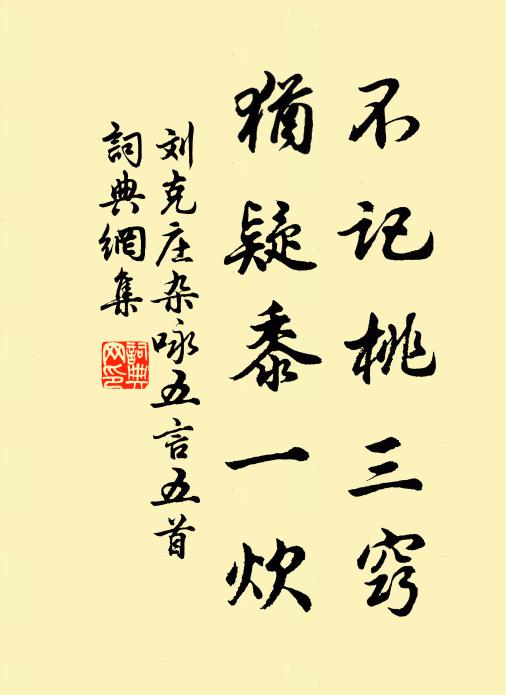 不记桃三窍
猶疑黍一炊
刘克庄杂咏五言五首
詞典網集
詞典网印